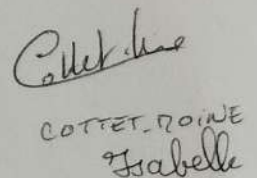 COTTET-MOINE
Isabelle